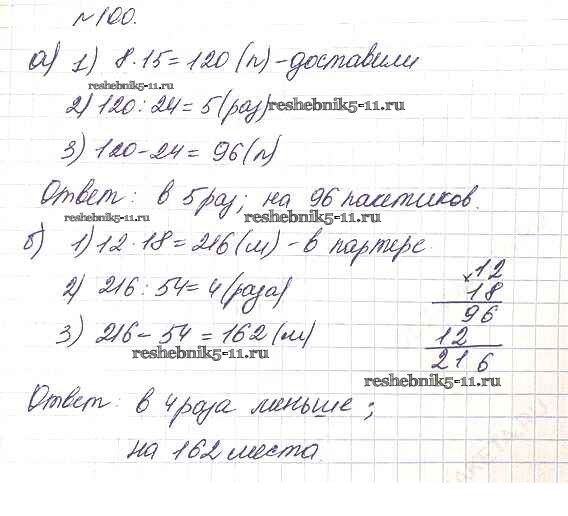 №100.
а) 1) 8·15=120 (п) - доставили
reshebnik5-11.ru
2) 120:24=5 (раз) reshebnik5-11.ru
3) 120-24=96 (п)
Ответ: в 5 раз; на 96 пакетиков.
reshebnik5-11.ru reshebnik5-11.ru
б) 1) 12·18=216 (м) - в партере.
2) 216:54=4 (раза)
3) 216-54=162 (м)
reshebnik5-11.ru
×12
18
96
12
216
reshebnik5-11.ru
Ответ: в 4 раза меньше;
на 162 места.